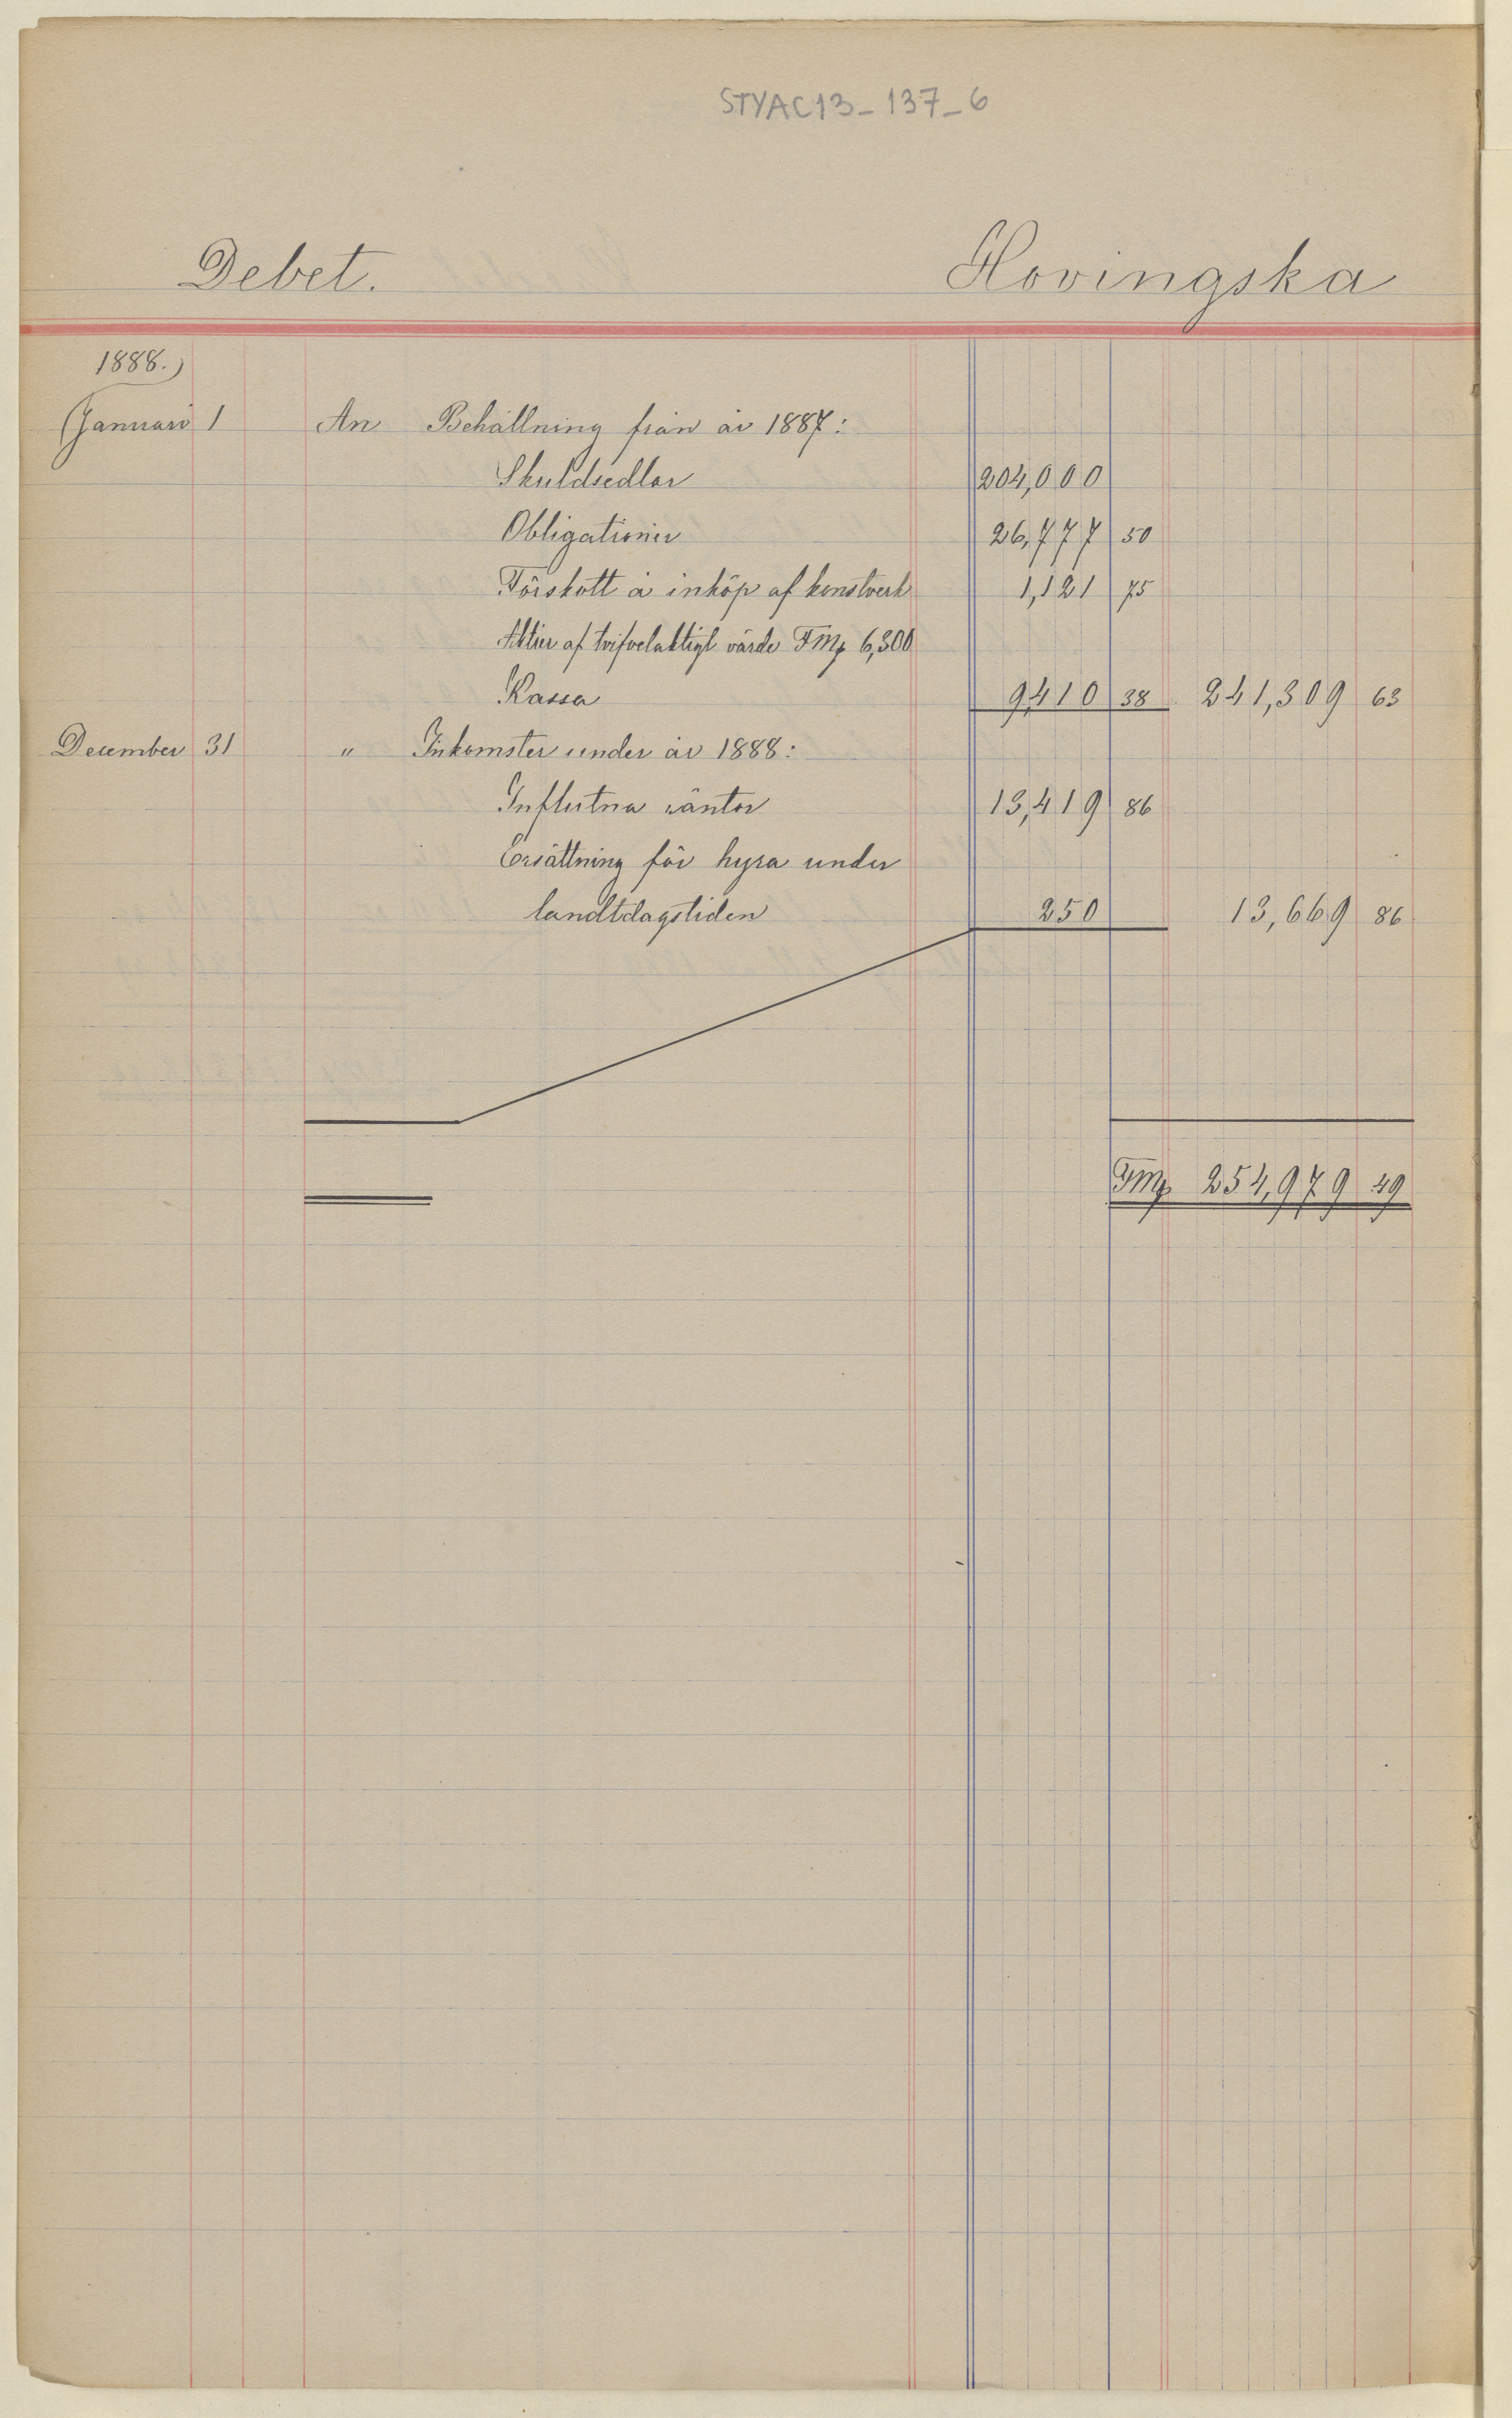 STYAC13_137_6
Debet. Hovingska
1888.
Januari 1 An Behållning från år 1887:
Skuldsedlar 204,000
Obligationer 26,777 50
Förskott å inköp af konstverk 1,121 75
Aktier af tvifvelaktigt värde Fmk 6,300
Kassa 9,410 38 241,309 63
December 31 " Inkomster under år 1888:
Influtna räntor 13,419 86
Ersättning för hyra under
landtdagstiden 250 13,669 86
Fmk 254,979 49